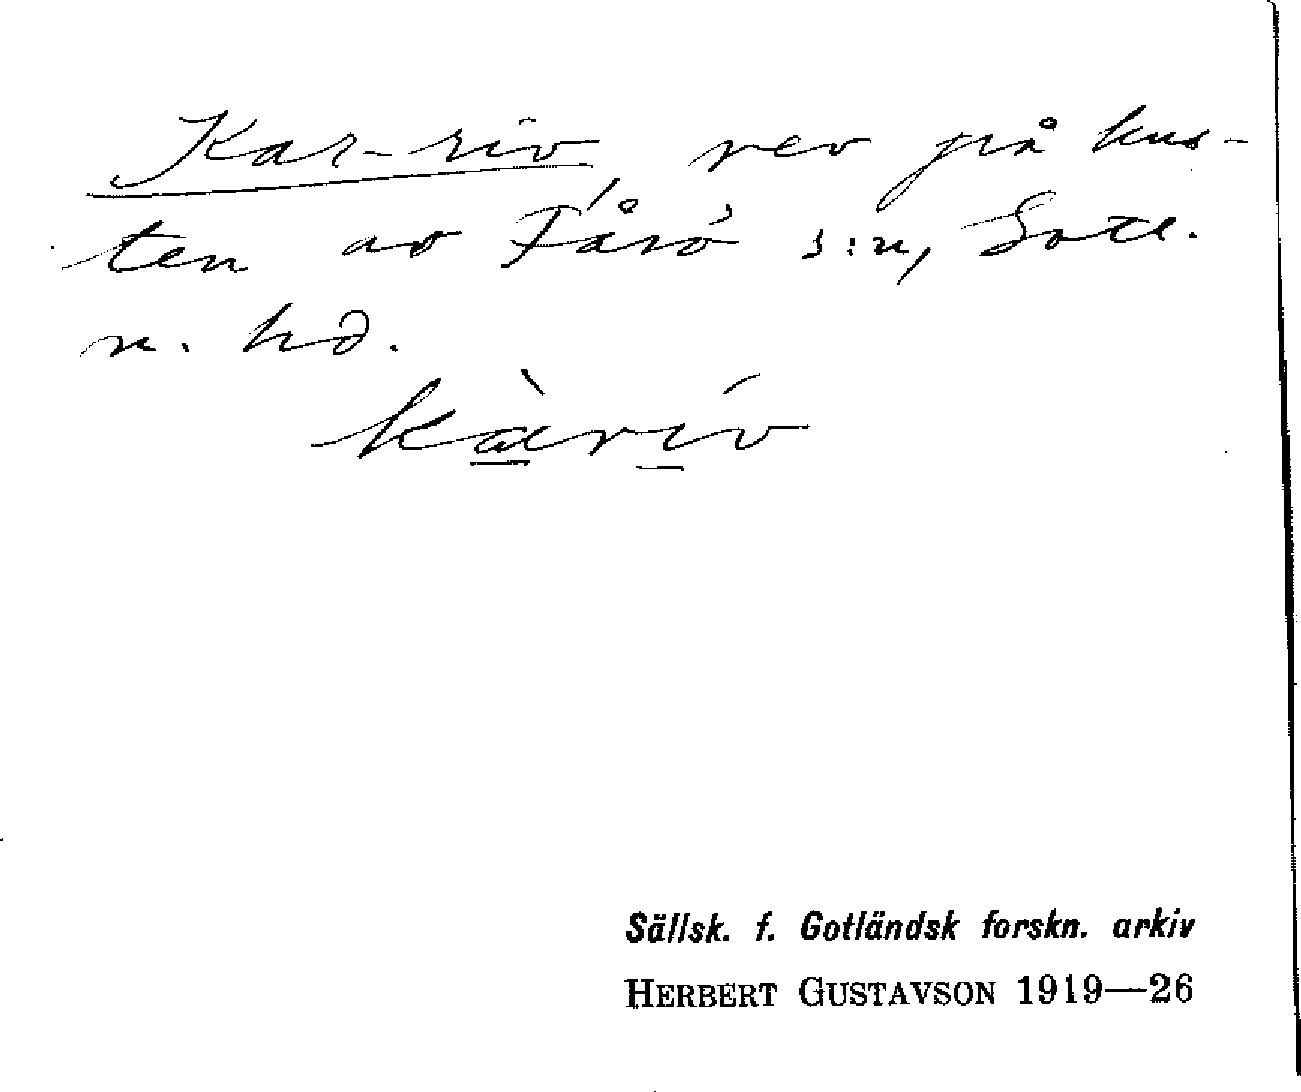 Kar-riv rev på kus-
ten av Fårö s:n, Gotl.
n. hd.
kàrív
Sällsk. f. Gotländsk forskn. arkiv
HERBERT GUSTAVSON 1919—26